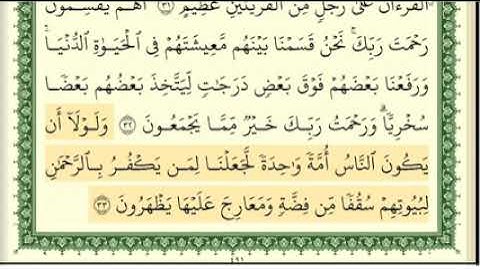 ٱلْقُرْءَانُ عَلَىٰ رَجُلٍ مِّنَ ٱلْقَرْيَتَيْنِ عَظِيمٍ ٣١ أَهُمْ يَقْسِمُونَ
رَحْمَتَ رَبِّكَ ۚ نَحْنُ قَسَمْنَا بَيْنَهُم مَّعِيشَتَهُمْ فِى ٱلْحَيَوٰةِ ٱلدُّنْيَا ۚ
وَرَفَعْنَا بَعْضَهُمْ فَوْقَ بَعْضٍ دَرَجَٰتٍ لِّيَتَّخِذَ بَعْضُهُم بَعْضًا
سُخْرِيًّا ۗ وَرَحْمَتُ رَبِّكَ خَيْرٌ مِّمَّا يَجْمَعُونَ ٣٢ وَلَوْلَآ أَن
يَكُونَ ٱلنَّاسُ أُمَّةً وَٰحِدَةً لَّجَعَلْنَا لِمَن يَكْفُرُ بِٱلرَّحْمَٰنِ
لِبُيُوتِهِمْ سُقُفًا مِّن فِضَّةٍ وَمَعَارِجَ عَلَيْهَا يَظْهَرُونَ ٣٣
٤٩١